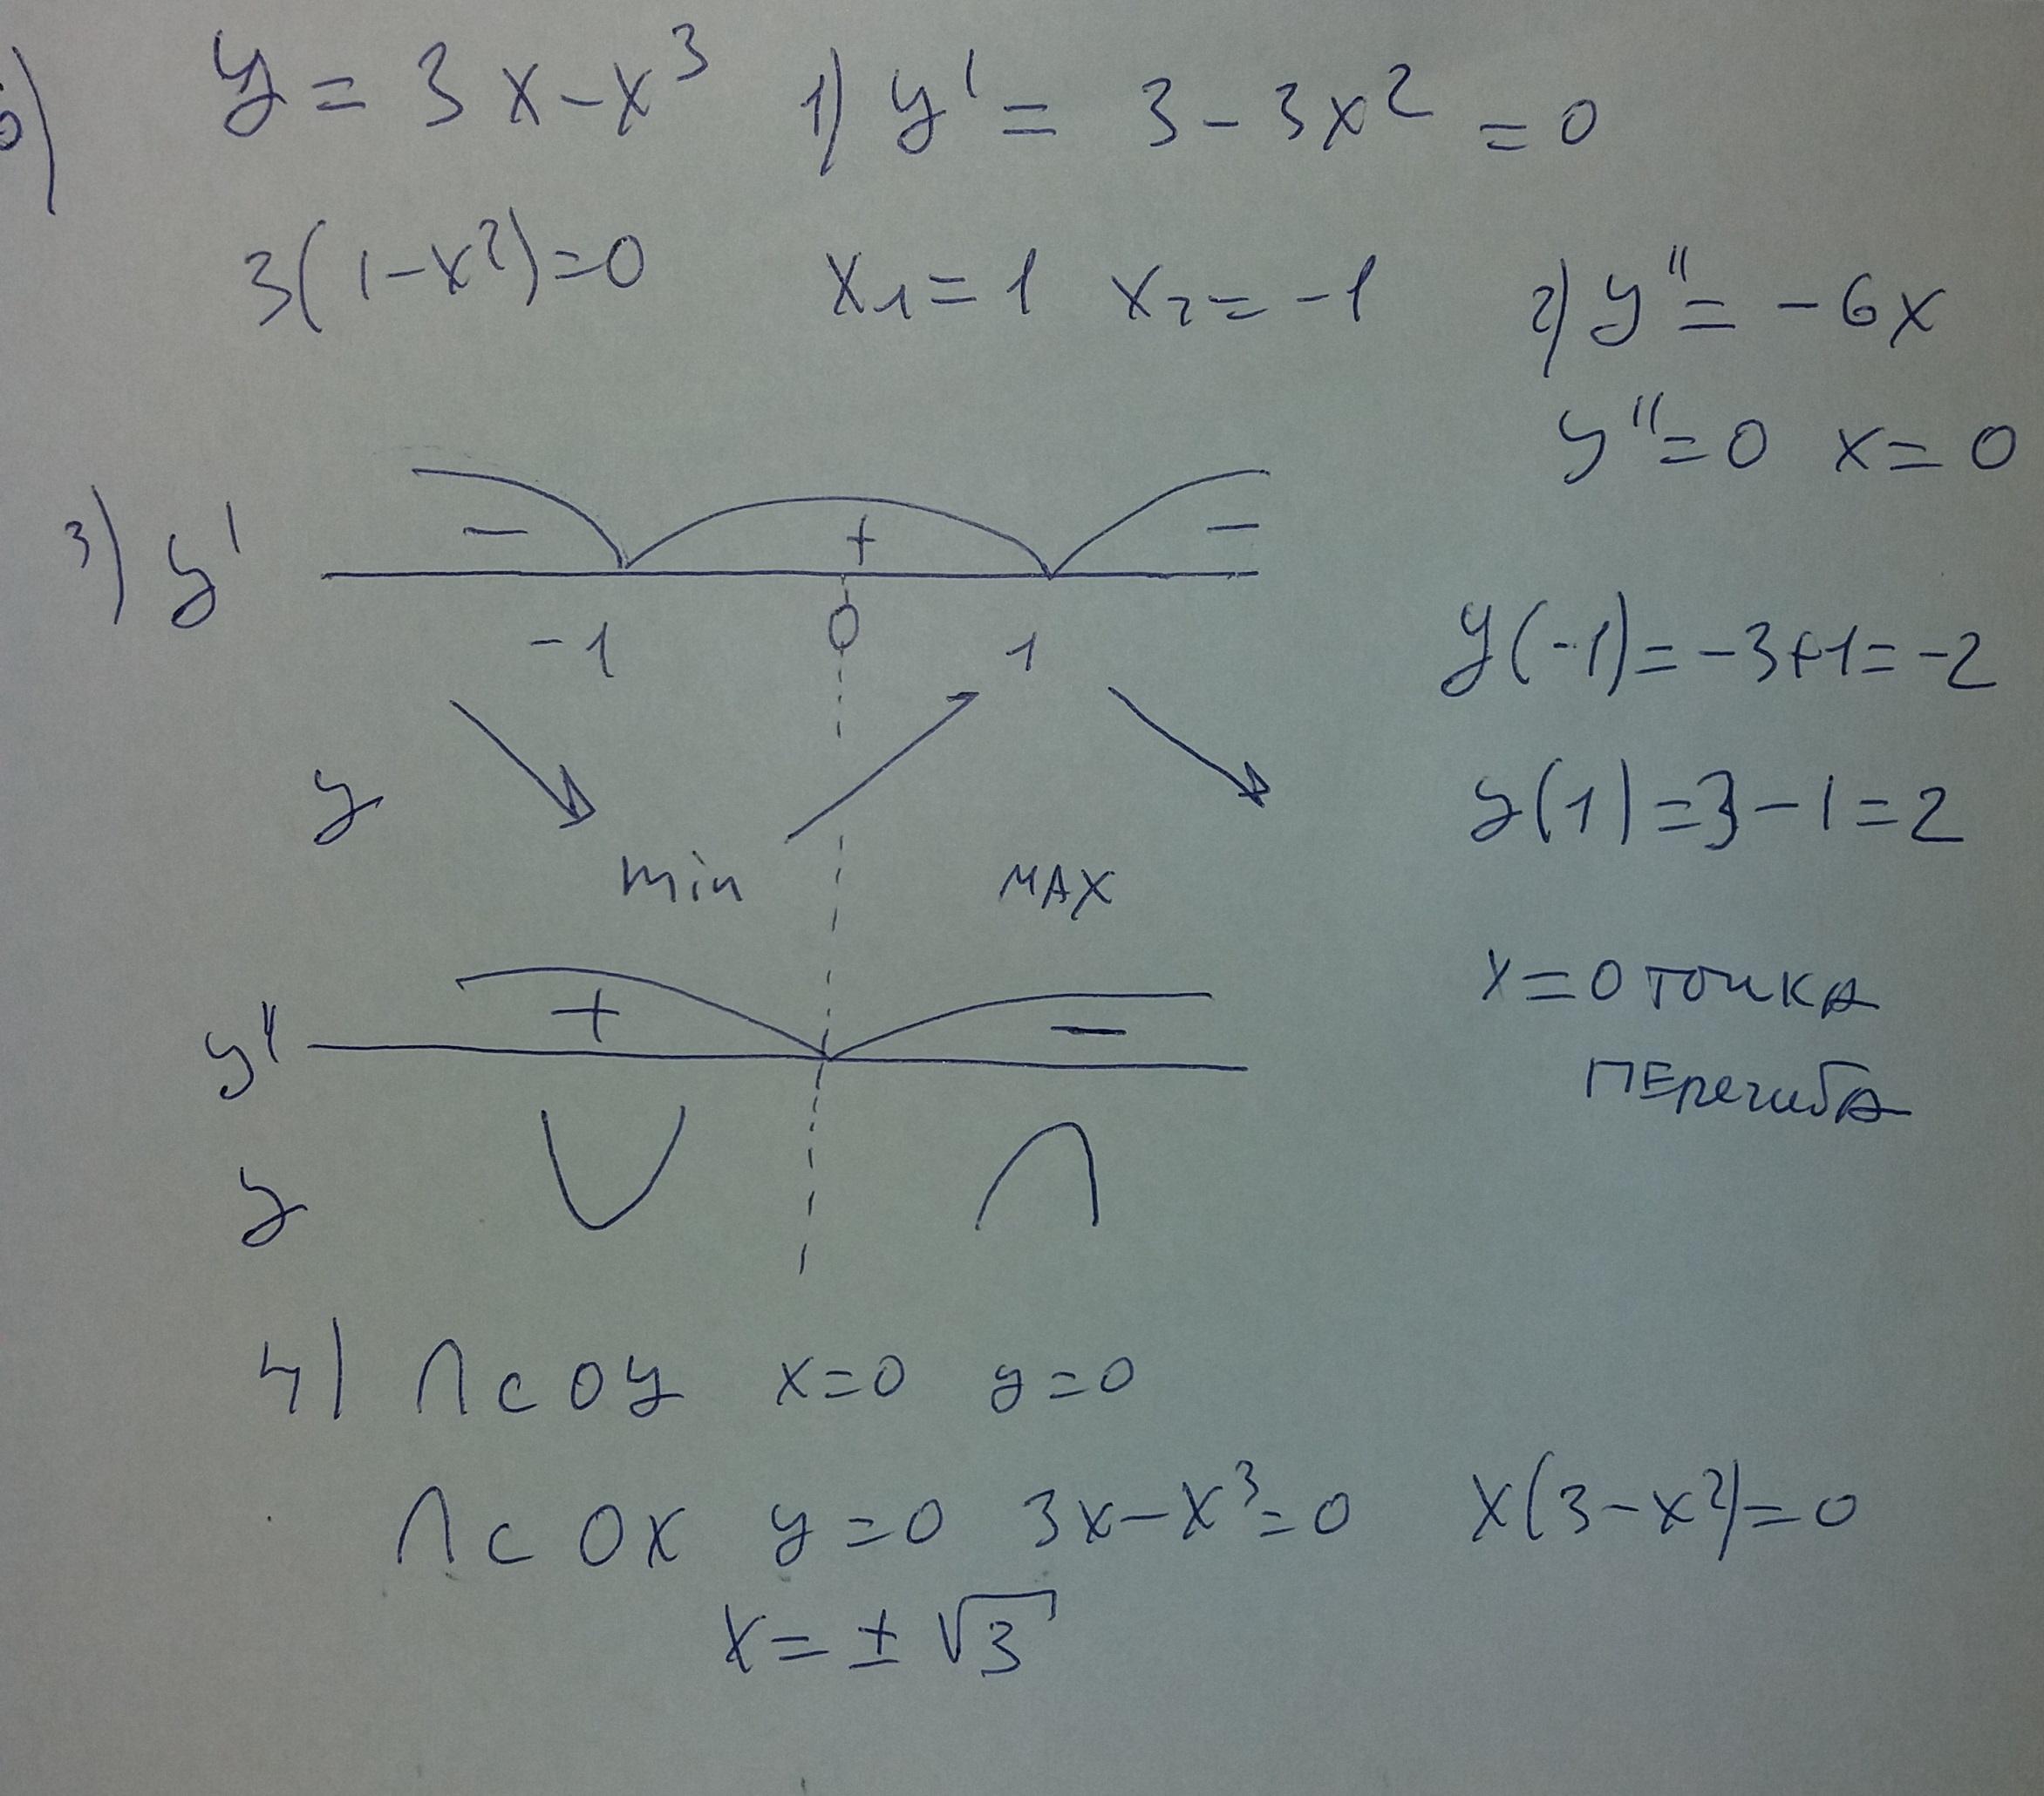 б) y = 3x-x³ 1) y' = 3-3x² = 0
3(1-x²)=0 x₁=1 x₂=-1 2) y''= -6x
y''=0 x=0
3) y' - + -
-1 0 1
y(-1)=-3+1=-2
y
y(1)=3-1=2
min MAX
x=0 точка
перегиба
y'' + -
y
4) ∩ с OY x=0 y=0
∩ с OX y=0 3x-x³=0 x(3-x²)=0
x=±√3